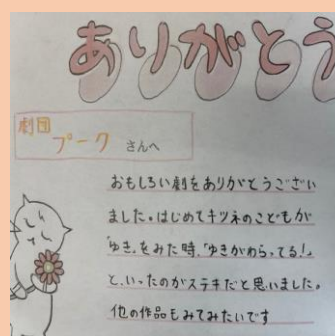 ありがとう
劇団
プーク さんへ
おもしろい劇をありがとうござい
ました。はじめてキツネのこどもが
「ゆき」をみた時、「ゆきがわらってる!」
と、いったのがステキだと思いました。
他の作品もみてみたいです